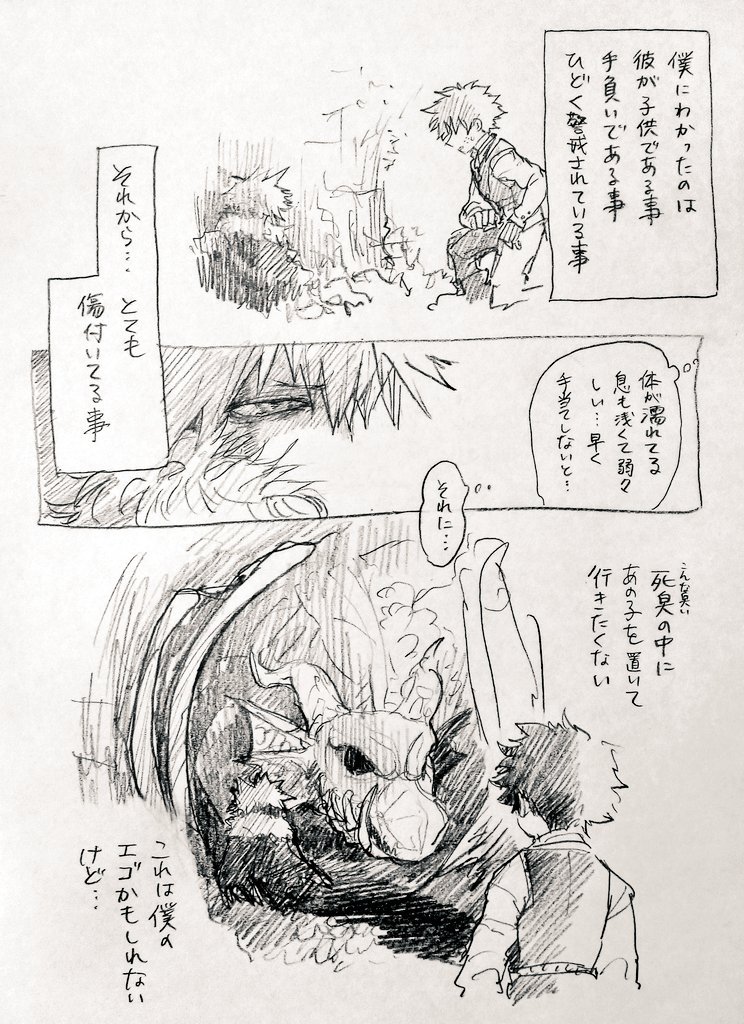 僕にわかったのは
彼が子供である事
手負いである事
ひどく警戒されている事
それから… とても
傷付いてる事
体が濡れてる
息も浅くて弱々
しい…早く
手当てしないと…
それに…
こんな臭い
死臭の中に
あの子を置いて
行きたくない
これは僕の
エゴかもしれない
けど…